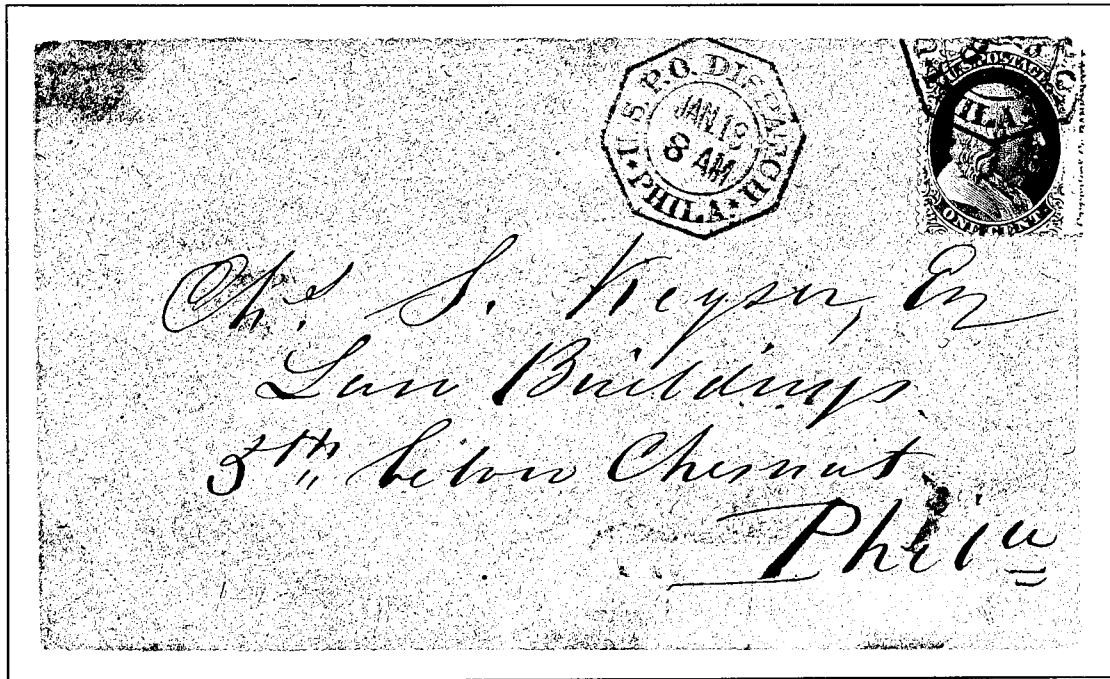 U.S. P.O. DISPATCH
JAN. 19
8 AM
PHILA
U.S. POSTAGE
ONE CENT
Chs. S. Keyser, Eq
Law Buildings
5th below Chesnut
Phila